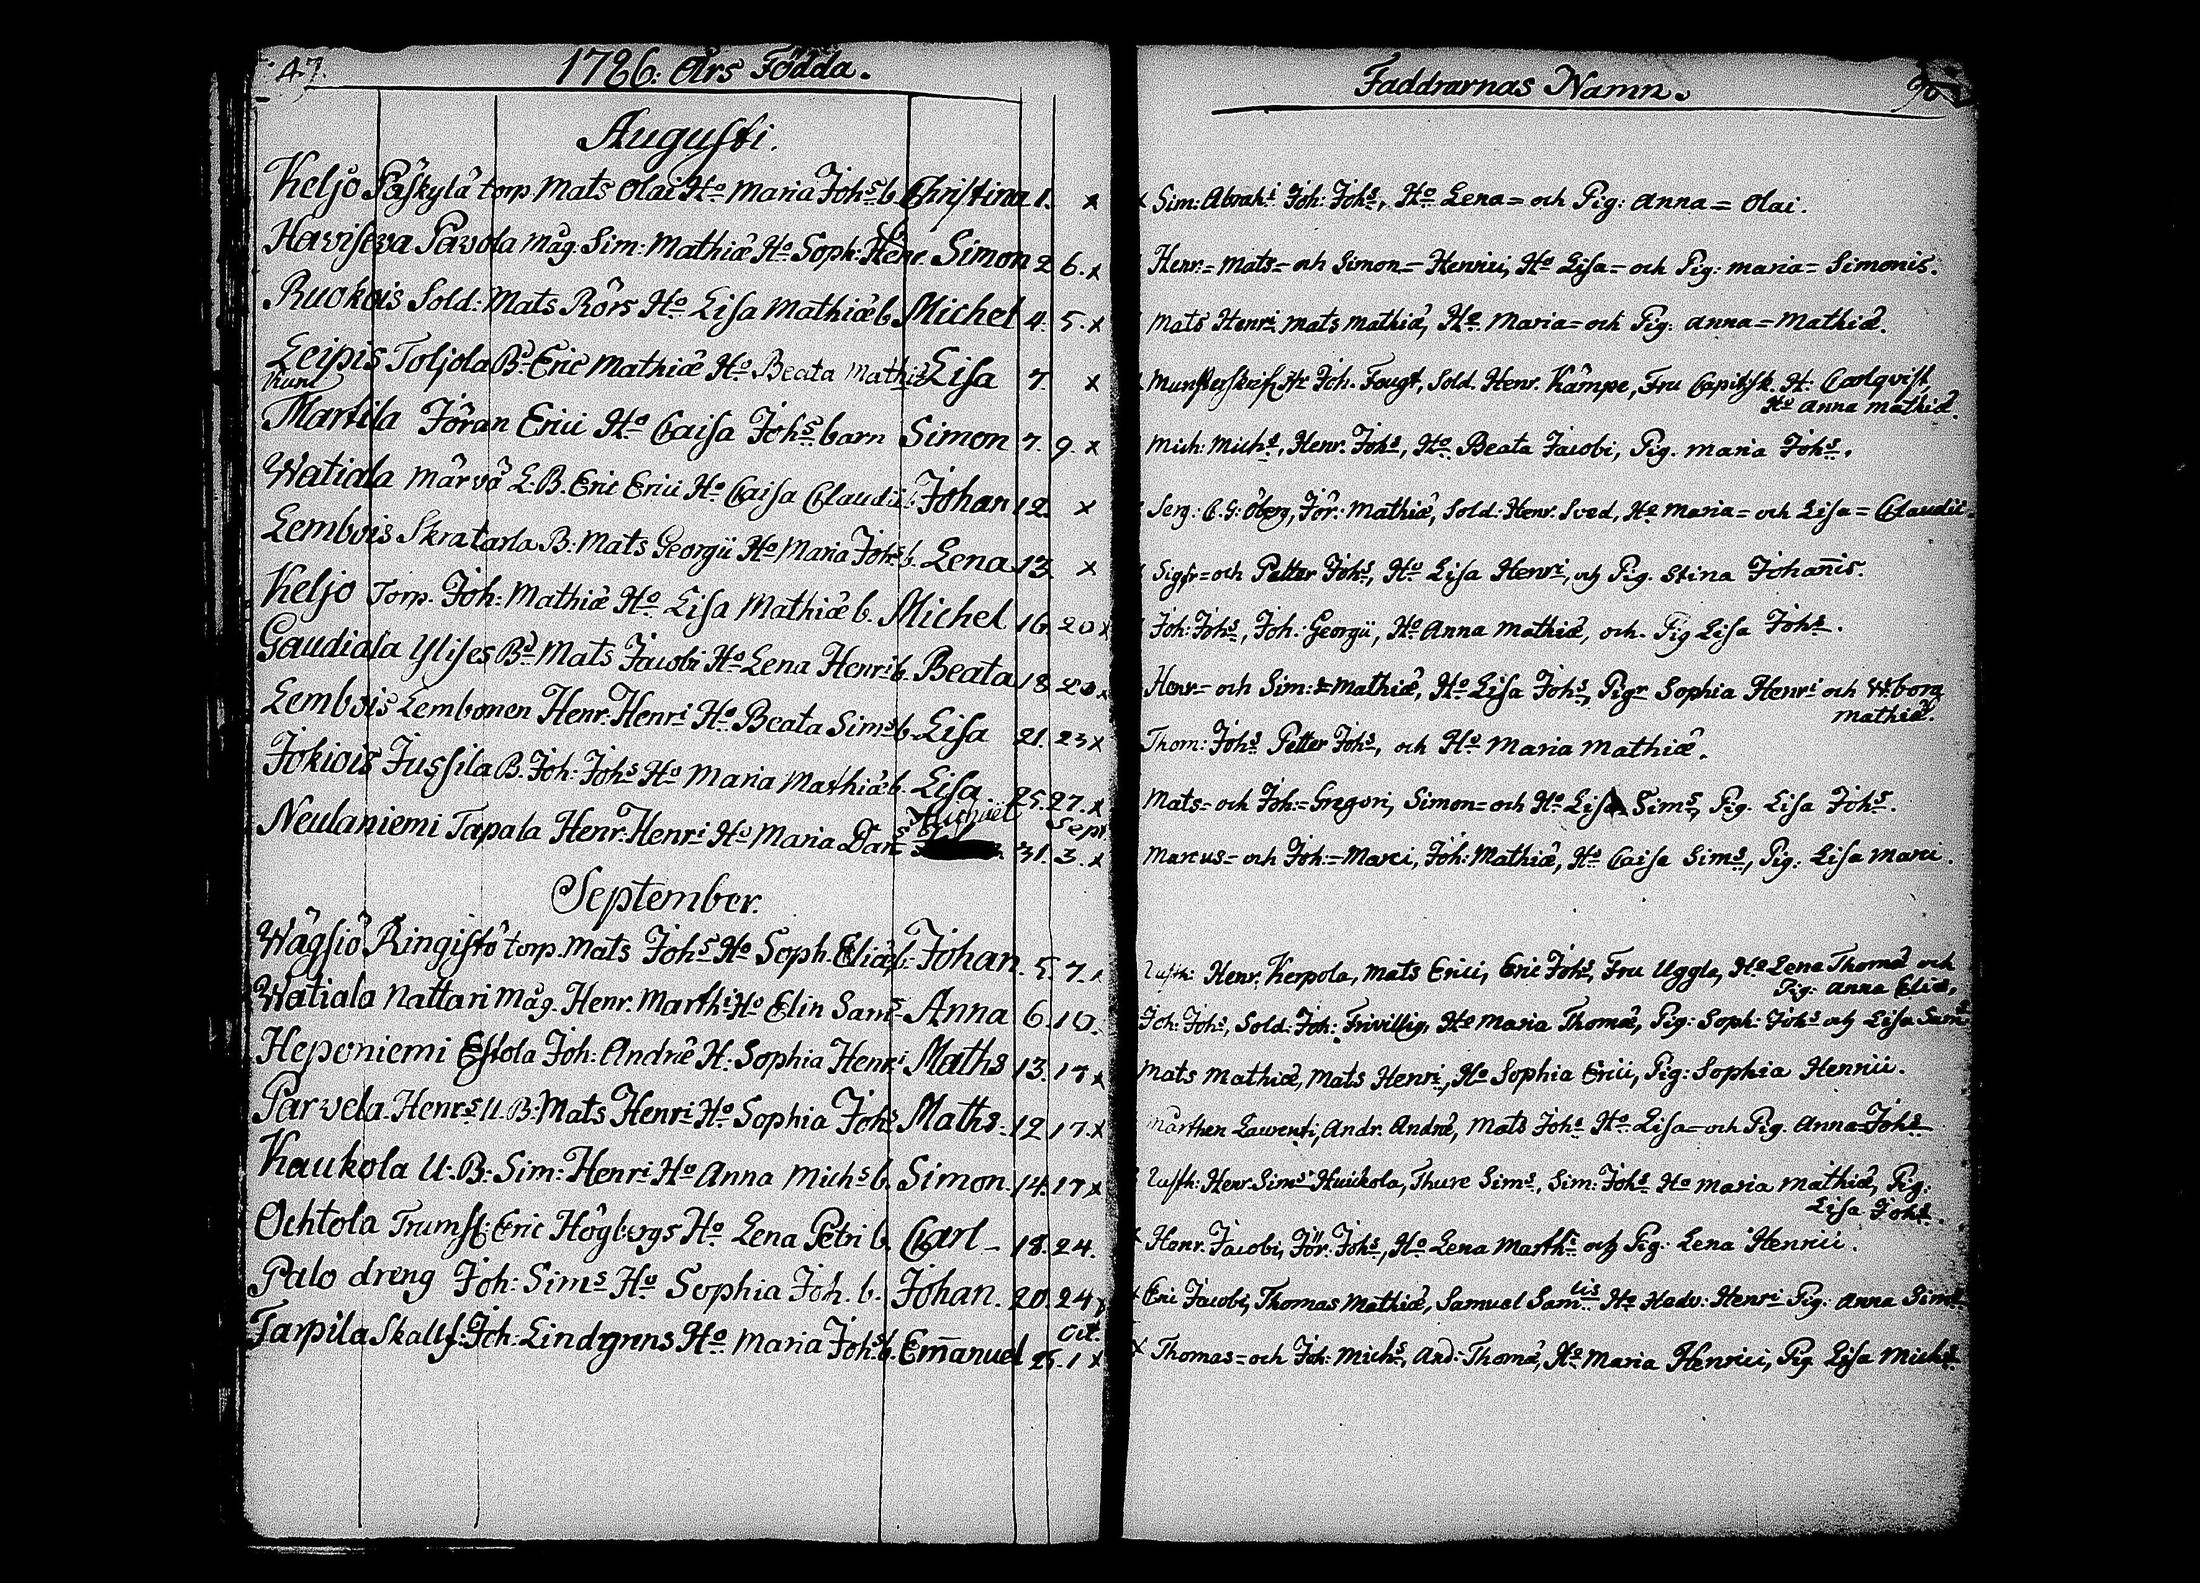 47.
1786: Års Födda.
Augusti.
Keljo Päskylä torp Mats Olai Ho Maria Johs b. Christina 1. x
Haviseva Pavola Måg: Sim: Mathiæ Ho Soph: Simon 2 6. x
Ruokois Sold: Mats Rörs Ho Lisa Mathiæ b. Michel 4. 5. x
Leipis Toljola Bd Eric Mathiæ Ho Beata Mathiæ Lisa 7. x
Martila Jöran Erici Ho Caisa Johs barn Simon 7. 9. x
Watiala Märvä L. B. Eric Erici Ho Caisa Claudii Johan 12. x
Lembois Skratarla B: Mats Georgii Ho Maria Johs b. Lena 13. x
Keljo Torp. Joh: Mathiæ Ho Lisa Mathiæ b. Michel 16. 20 x
Gaudiala Ylises Bd Mats Jacobi Ho Lena Henri b. Beata 18 20 x
Lembois Lembonen Henr. Henri Ho Beata Sims b. Lisa 21. 23 x
Jokiois Jussila B. Joh: Johs Ho Maria Mathiæ b. Lisa 25. 27. x
Michael Sept
Neulaniemi Tapala Henr. Henri Ho Maria Dans 31. 3. x
September.
Wägsiö Ringistö torp. Mats Johs Ho Soph. Eliæ b. Johan. 5. 7. x
Watiala Nattari Måg. Henr. Marthi Ho Elin Sams Anna 6. 10.
Heponiemi Eskola Joh: Andræ H: Sophia Henri Maths 13. 17 x
Parvela Henrs U. B: Mats Henri Ho Sophia Johs Maths. 12 17. x
Kaukola U: B: Sim: Henri Ho Anna Michs b. Simon 14. 17 x
Ochtola Trumsl: Eric Högbergs Ho Lena Petri b. Carl 18. 24.
Palo dreng Joh: Sims Ho Sophia Joh. b. Johan. 20. 24 x
Oct.
Tarpila Skallf: Joh: Lindgrens Ho Maria Johs b. Em̄anuel 25. 1 x
Faddrarnas Namn.
x Sim: Abrahi Joh: Johs, Ho Lena = och Pig: Anna = Olai.
Henr = Mats = och Simon = Henrici, Ho Lisa = och Pig: Maria = Simonis.
Mats Henri Mats Mathiæ, Ho Maria = och Pig: Anna = Mathiæ.
Munsterskrifv: Joh. Fougt, Sold. Henr. Kämpe, Fru Capitsk. H: Carlqvist,
Ho Anna Mathiæ.
Mich: Michs, Henr. Johs, Ho Beata Jacobi, Pig. Maria Johs.
Serg: C. G: Öberg, Jör: Mathiæ, Sold: Henr. Sved, Ho Maria = och Lisa = Claudii
Sigfr = och Petter Johs, Ho Lisa Henri, och Pig. Stina Johañis.
Joh: Johs, Joh.: Georgii, Ho Anna Mathiæ, och. Pig Lisa Johs.
Henr = och Sim: = Mathiæ, Ho Lisa Johs, Pigr Sophia Henri och Wborg
Mathiæ.
Thom: Johs Petter Johs, och Ho Maria Mathiæ.
Mats = och Joh: = Gregori, Simon = och Ho Lisa Sims, Pig. Lisa Johs.
Marcus = och Joh: = Marci, Joh: Mathiæ, Ho Caisa Sims, Pig: Lisa Marci.
Henr. Kerpola, Mats Erici, Eric Johs, Fru Uggla, Ho Lena Thomæ och
Pig: Anna Eliæ,
Joh: Johs, Sold: Joh: Frivillig, Ho Maria Thomæ, Pig: Soph: Johs och Lisa Sams
Mats Mathiæ, Mats Henri, Ho Sophia Erici, Pig: Sophia Henrici.
Mårthen Laurenti, Andr. Andræ, Mats Johs Ho Lisa = och Pig. Anna = Johs
Henr. Sims Huickola, Thure Sims, Sim: Johs Ho Maria Mathiæ, Pig:
Lisa Johs.
x Henr. Jacobi, Jör. Johs, Ho Lena Marthi och Pig: Lena Henrici.
x Eric Jacobi, Thomas Mathiæ, Samuel Samlis Ho Hedv: Henri Pig: Anna Sims
x Thomas = och Joh: Michs, And: Thomæ, Ho Maria Henrici, Pig. Lisa Michs